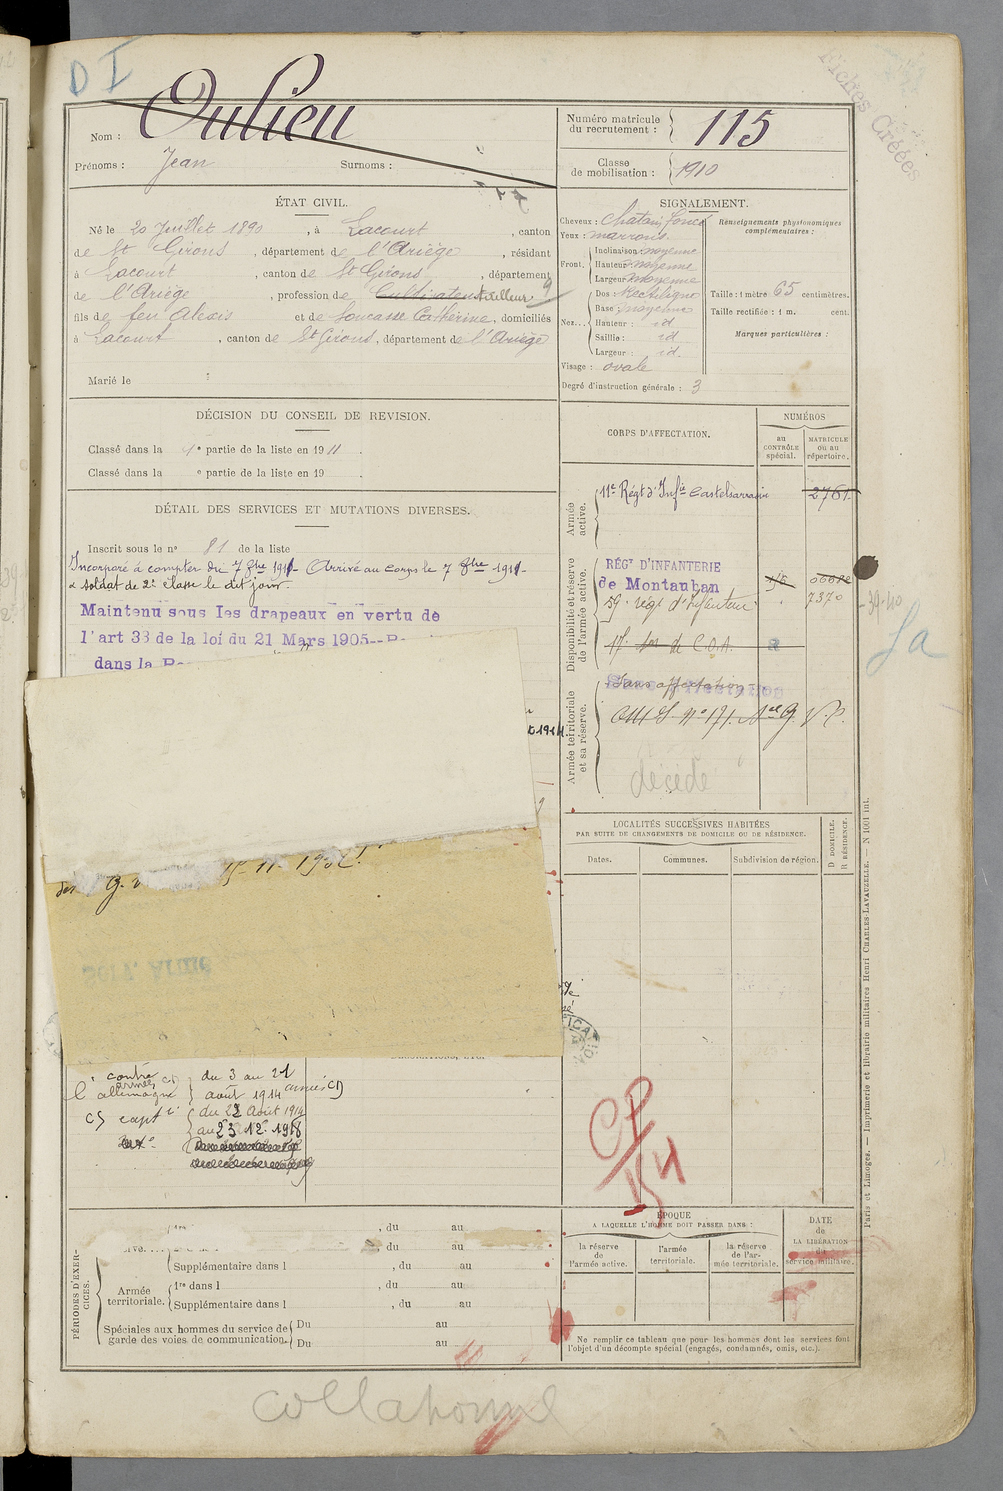 D I
Fiches Créées
Nom : Oulieu
Prénoms : Jean Surnoms :
Numéro matricule du recrutement : 115
Classe de mobilisation : 1910
ÉTAT CIVIL.
Né le 20 Juillet 1890, à Lacourt, canton
de St Girons, département de l'Ariège, résidant
à Lacourt, canton de St Girons, département
de l'Ariège, profession de Cultivateur tailleur 9
fils de feu Alexis et de Soucasse Catherine, domiciliés
à Lacourt, canton de St Girons, département de l'Ariège
Marié le
SIGNALEMENT.
Cheveux : Chatain foncé
Yeux : marrons
Front. Inclinaison : moyenne
Hauteur : moyenne
Largeur : moyenne
Nez... Dos : Rectiligne
Base : moyenne
Hauteur : id
Saillie : id
Largeur : id
Visage : ovale
Degré d'instruction générale : 3
Renseignements physionomiques complémentaires :
Taille : 1 mètre 65 centimètres.
Taille rectifiée : 1 m. cent.
Marques particulières :
DÉCISION DU CONSEIL DE REVISION.
Classé dans la 1e partie de la liste en 1911.
Classé dans la e partie de la liste en 19 .
DÉTAIL DES SERVICES ET MUTATIONS DIVERSES.
Inscrit sous le no 81 de la liste
Incorporé à compter du 7 8bre 1911. Arrivé au corps le 7 8bre 1911.
& soldat de 2e classe le dit jour.
Maintenu sous les drapeaux en vertu de
l'art 33 de la loi du 21 Mars 1905
dans la
CORPS D'AFFECTATION.
NUMÉROS
au CONTRÔLE spécial.
MATRICULE ou au répertoire.
Armée active.
11e Régt d'Infie Castelsarrasin 2761
Disponibilité et réserve de l'armée active.
RÉGt D'INFANTERIE
de Montauban
59e régt d'Infanterie 7370
17e de C.O.A.
Armée territoriale et sa réserve.
Sans affectation
décédé
39-40
Sa
LOCALITÉS SUCCESSIVES HABITÉES
PAR SUITE DE CHANGEMENTS DE DOMICILE OU DE RÉSIDENCE.
Dates.
Communes.
Subdivision de région.
D DOMICILE. R RÉSIDENCE.
Serv. Armé
contre l'allemagne
du 3 au 21
août 1914
du 22 Août 1914
au 23.12.1918
CP
154
PÉRIODES D'EXERCICES.
, du au
, du au
Supplémentaire dans l , du au
Armée territoriale. 1re dans l , du au
Supplémentaire dans l , du au
Spéciales aux hommes du service de garde des voies de communication. Du au
Du au
ÉPOQUE
A LAQUELLE L'HOMME DOIT PASSER DANS :
la réserve de l'armée active.
l'armée territoriale.
la réserve de l'armée territoriale.
DATE de LA LIBÉRATION du service militaire.
Ne remplir ce tableau que pour les hommes dont les services font
l'objet d'un décompte spécial (engagés, condamnés, omis, etc.).
Paris et Limoges. — Imprimerie et librairie militaires Henri CHARLES-LAVAUZELLE. — N 1001 int.